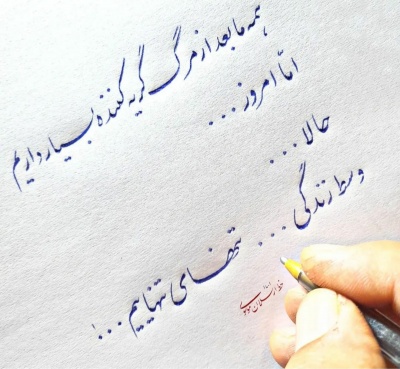 همه ما بعد از مرگ گریه کننده بسیار داریم
امّا امروز ...
حالا ...
وسط زندگی ... تنهای تنهاییم ...!